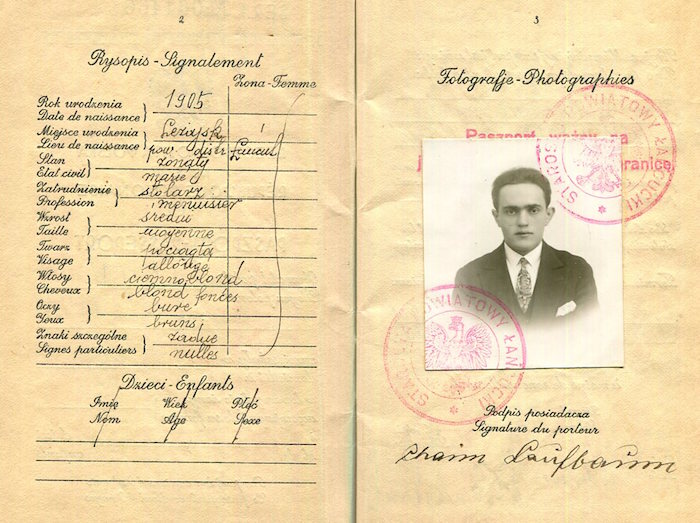 2
Rysopis - Signalement
Żona - Femme
Rok urodzenia
Date de naissance
1905
Miejsce urodzenia
Lieu de naissance
Leżajsk
pow. distr. Łańcut
Stan
Etat civil
żonaty
marié
Zatrudnienie
Profession
stolarz
menuisier
Wzrost
Taille
średni
moyenne
Twarz
Visage
pociągła
allongé
Włosy
Cheveux
ciemno blond
blond foncés
Oczy
Yeux
bure
bruns
Znaki szczególne
Signes particuliers
żadne
nulles
Dzieci - Enfants
Imię Wiek Płeć
Nom Age Sexe
3
Fotografje - Photographies
Paszport ważny na
granicę
POWIATOWY ŁAŃCUCKI
STAROS
POWIATOWY ŁAŃ
CUCKI
STAR
Podpis posiadacza
Signature du porteur
Chaim Laufbaum